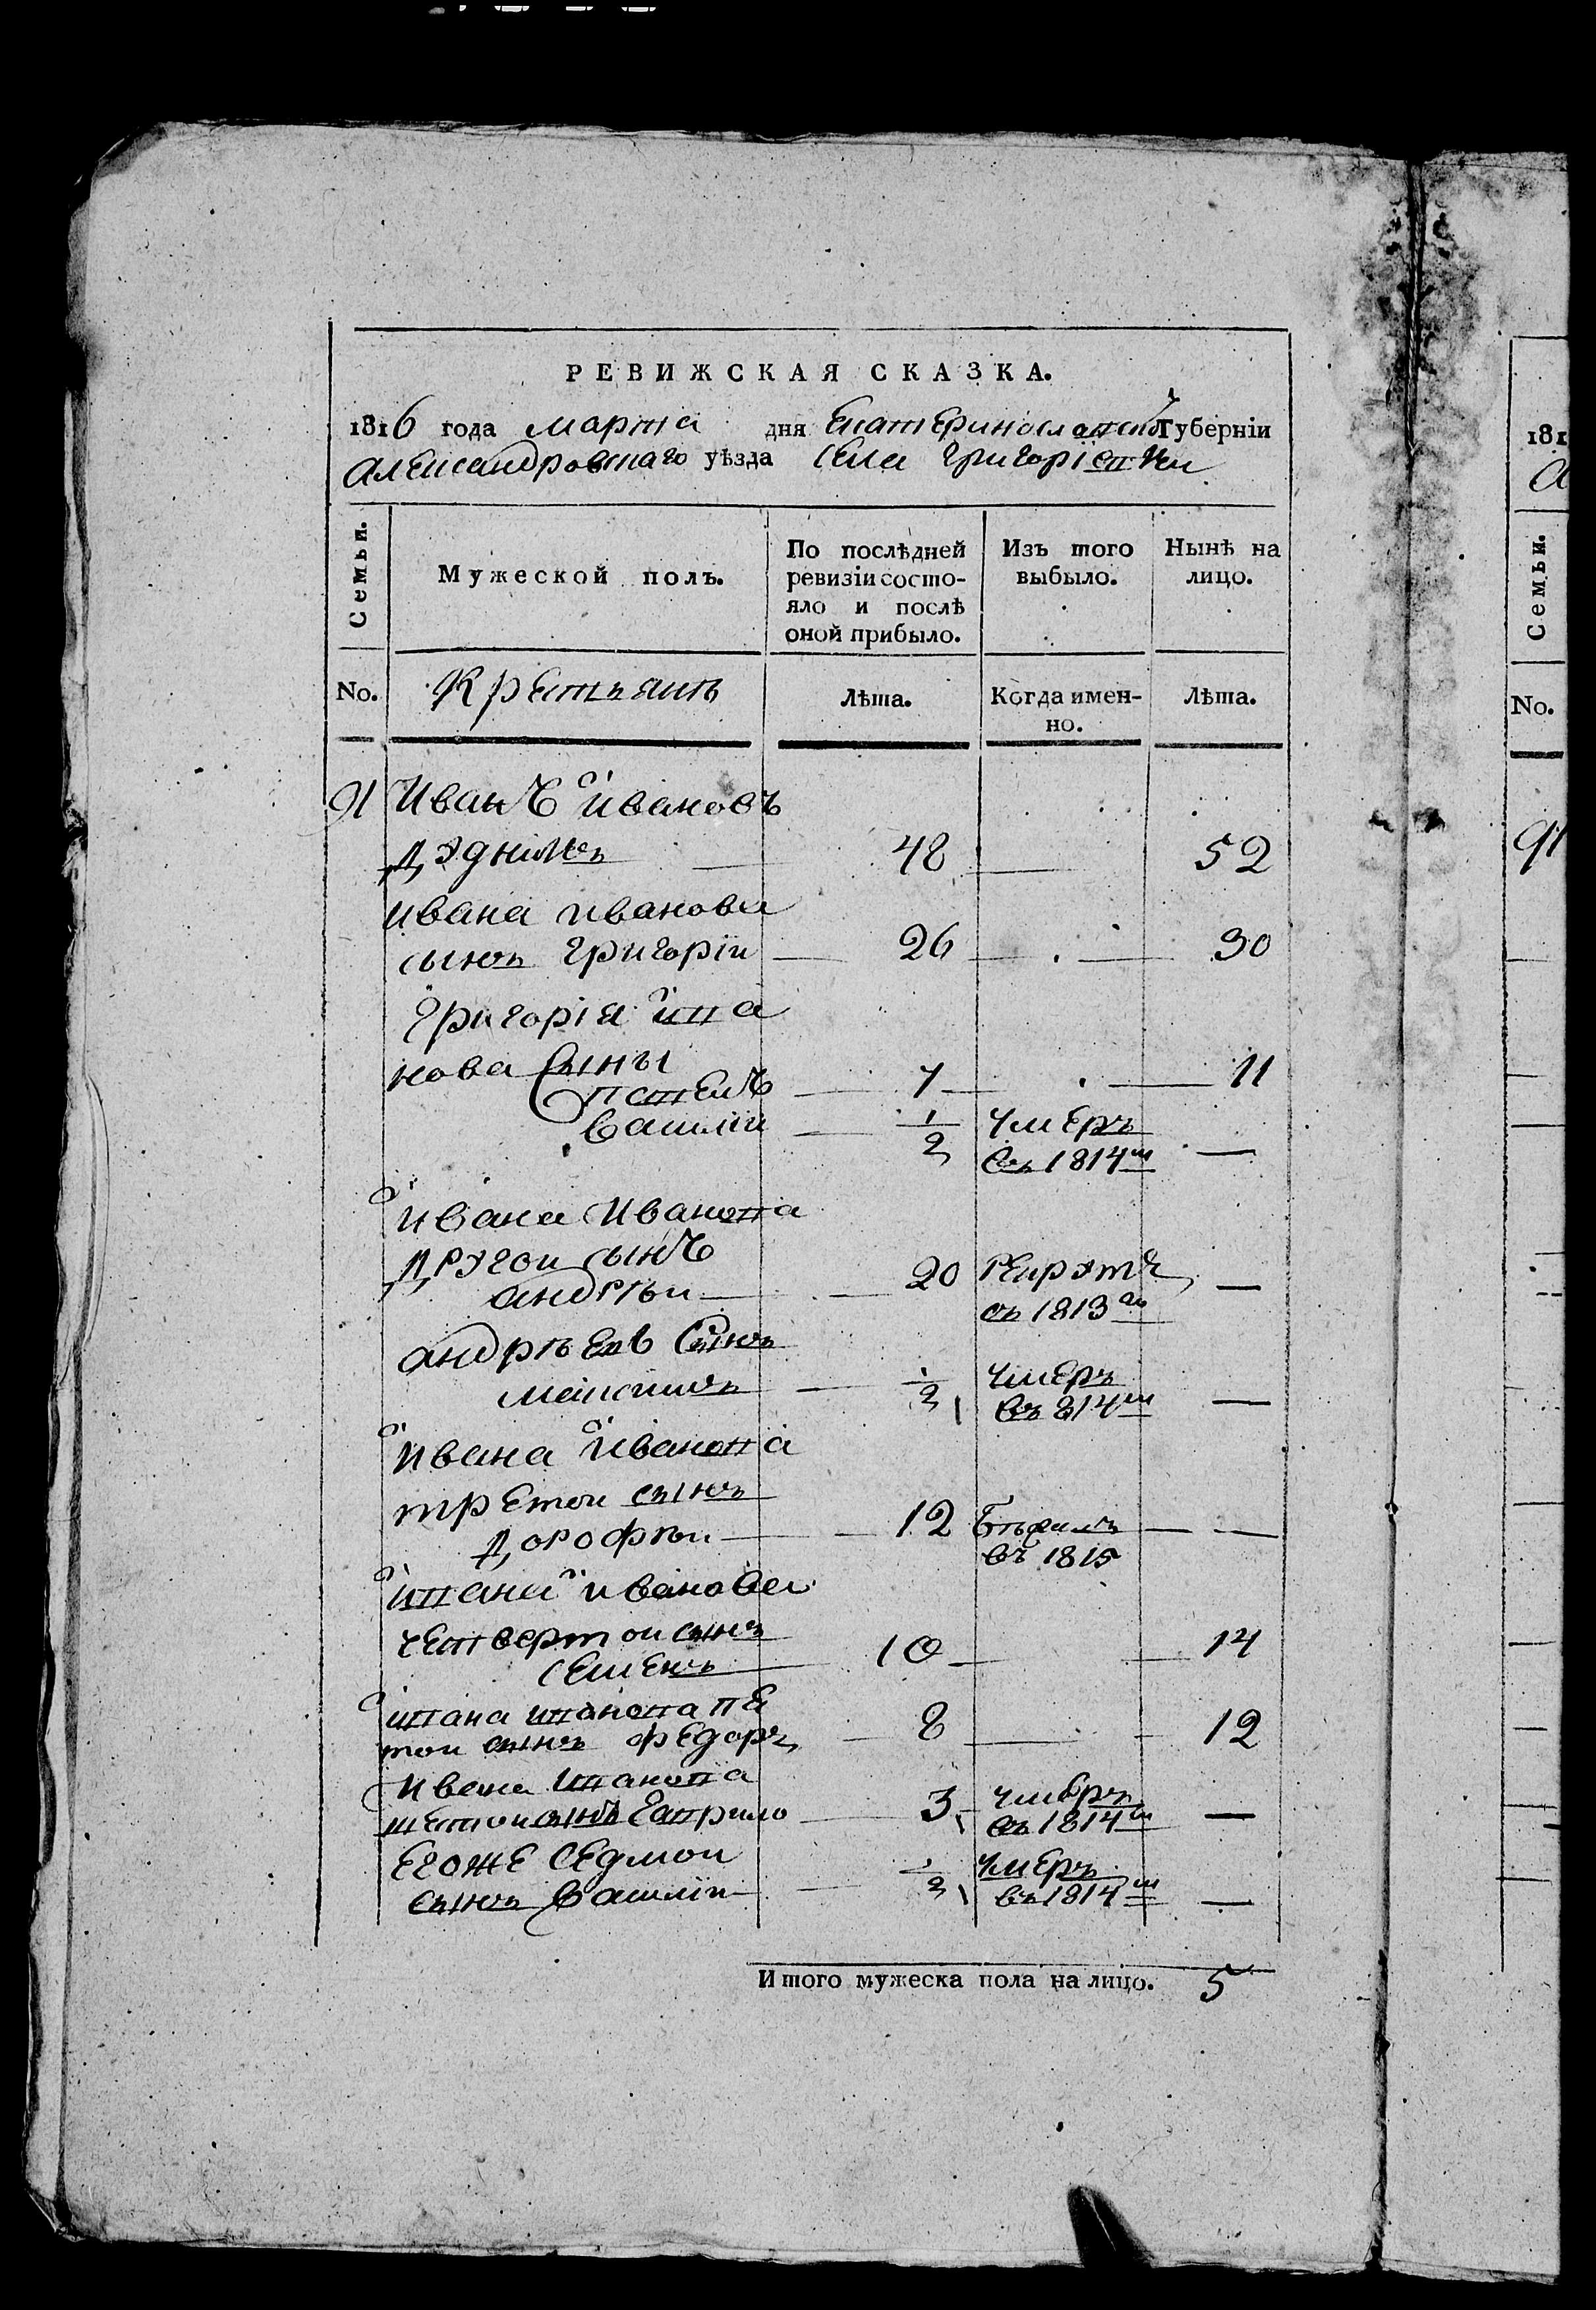 РЕВИЖСКАЯ СКАЗКА.
1816 года марта дня Екатеринославской Губерніи
Александровскаго уѣзда села Григорїевки
Семьи.
Мужеской полъ.
По послѣдней ревизіи состояло и послѣ оной прибыло.
Изъ того выбыло.
Нынѣ на лицо.
No.
Крестьянъ
Лѣта.
Когда именно.
Лѣта.
Иванъ Ивановъ
48 52
Ивана Иванова
сынъ Григорїй 26 30
Григорїя Ива
нова сыны
Павелъ 7 11
Василїй 1/2 умеръ
въ 1814м
Ивана Иванова
другой сынъ
Андрѣй 20 Рекрутъ
въ 1813го
Андрѣевъ сынъ
Максимъ 1/2 умеръ
въ 814м
Ивана Иванова
третой сынъ
Дорофѣй 12
въ 1815
Ивана Иванова
четвертой сынъ
Семенъ 10 14
Ивана Иванова пе
той сынъ Федоръ 8 12
Ивана Иванова
шестой сынъ Гаврило 3 умеръ
въ 1814м
Егоже седмой
сынъ Василїй 1/2 умеръ
въ 1814м
Итого мужеска пола на лицо. 5
181
Семьи.
No.
91